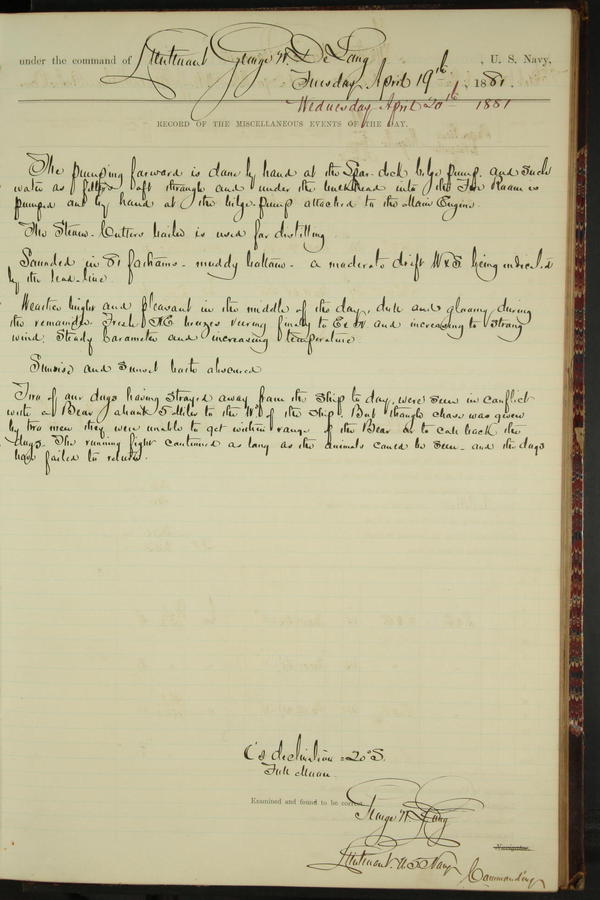 under the command of Lieutenant George W. De Long, U. S. Navy,
Tuesday April 19th, 1881.
Wednesday April 20th 1881
RECORD OF THE MISCELLANEOUS EVENTS OF THE DAY.
The pumping forward is done by hand at the Spar-deck bilge pump. and such
water as filters aft through and under the bulkhead into the Fire Room is
pumped out by hand at the bilge-pump attached to the Main Engine.
The Steam-Cutters boiler is used for distilling
Sounded in 31 fathoms - muddy bottom - a moderate drift W & S being indicated
by the lead-line.
Weather bright and pleasant in the middle of the day, dull and gloomy during
the remainder. Fresh NE breezes veering finally to and increasing to strong
wind; Steady barometer and increasing temperature.
Sunrise and Sunset both obscured
Two of our dogs having strayed away from the ship to day, were seen in conflict
with a Bear about 5 Miles to the Wd of the ship. But though chase was given
by two men they were unable to get within range of the Bear or to call back the
dogs. The running fight continued as long as the animals could be seen - and the dogs
have failed to return.
C's declination = 20° S.
Full Moon.
Examined and found to be correct.
George W. De Long
Navigator.
Lieutenant U.S. Navy
Commanding